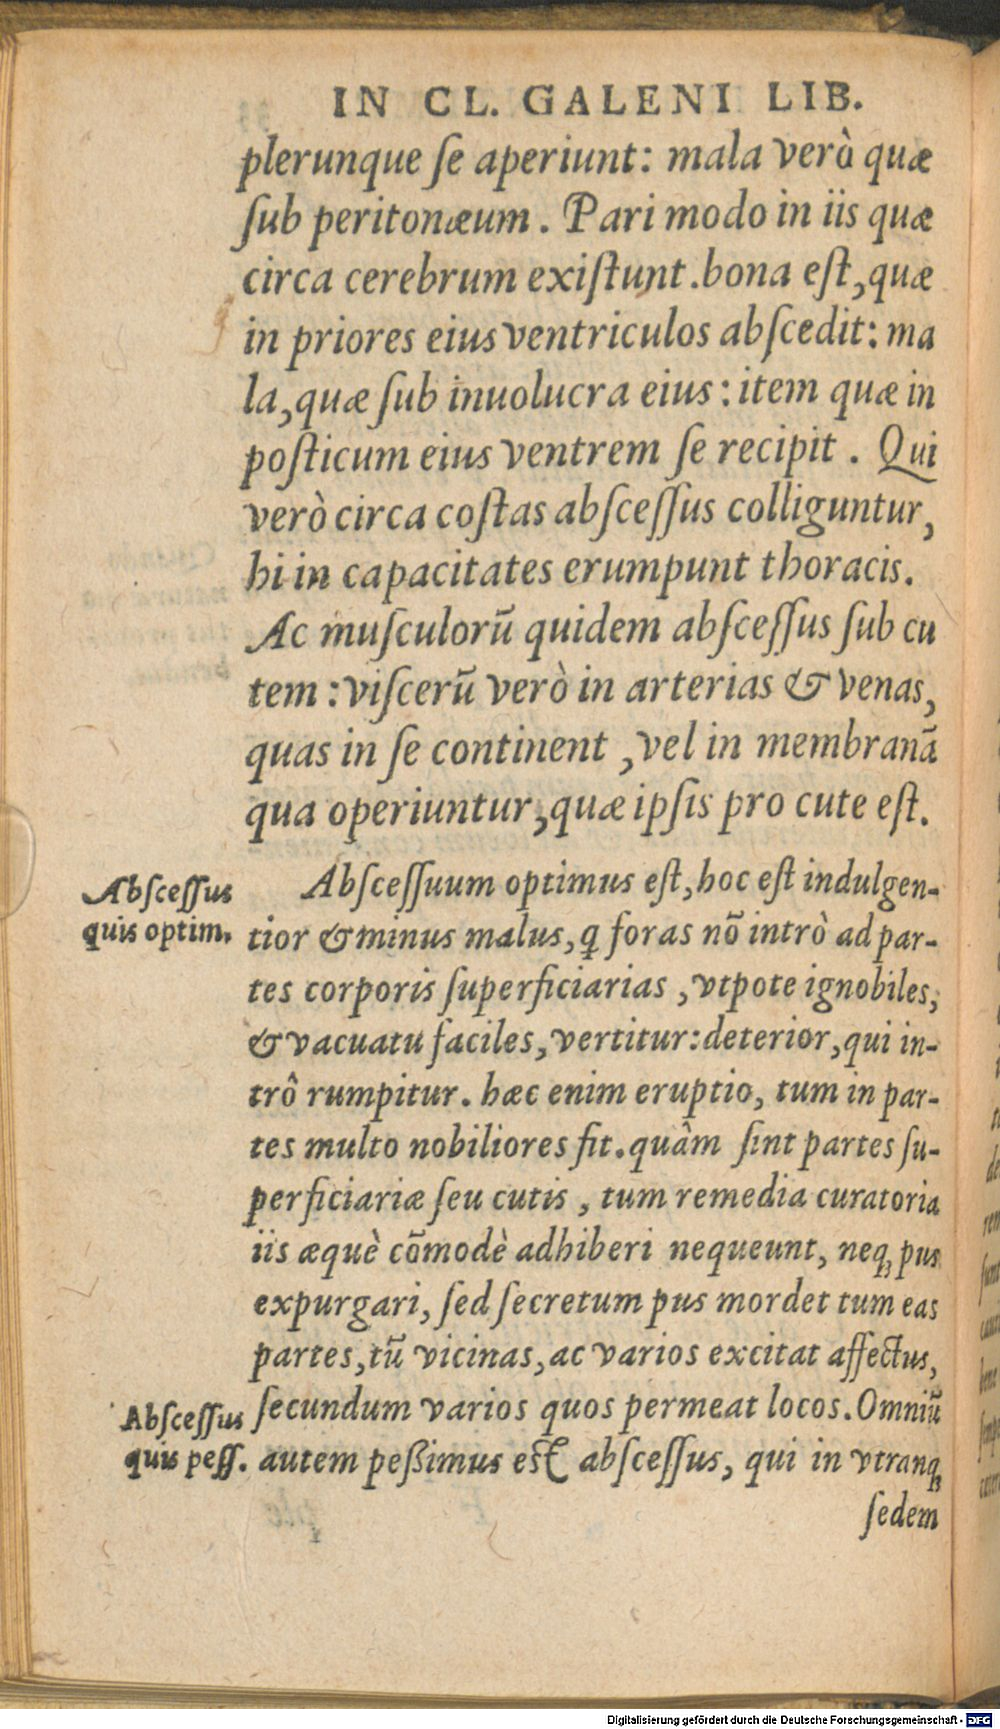 IN CL. GALENI LIB.
plerunque ſe aperiunt: mala verò quæ
ſub peritonæum. Pari modo in iis quæ
circa cerebrum exiſtunt. bona eſt, quæ
in priores eius ventriculos abſcedit: ma
la, quæ ſub inuolucra eius: item quæ in
poſticum eius ventrem ſe recipit. Qui
verò circa coſtas abſceſſus colliguntur,
hi in capacitates erumpunt thoracis.
Ac muſculorū quidem abſceſſus ſub cu
tem: viſcerū verò in arterias & venas,
quas in ſe continent, vel in membranā
qua operiuntur, quæ ipſis pro cute eſt.
Abſceſſus
quis optim.
Abſceſſuum optimus eſt, hoc eſt indulgen-
tior & minus malus, q̨ foras nō intrò ad par-
tes corporis ſuperficiarias, vtpote ignobiles,
& vacuatu faciles, vertitur: deterior, qui in-
trô rumpitur. hæc enim eruptio, tum in par-
tes multo nobiliores fit. quâm ſint partes ſu-
perficiariæ ſeu cutis, tum remedia curatoria
iis æquè cōmodè adhiberi nequeunt, neqꝫ pus
expurgari, ſed ſecretum pus mordet tum eas
partes, tū vicinas, ac varios excitat affectus,
ſecundum varios quos permeat locos. Omniū
Abſceſſus
quis peſſ.
autem peßimus eſt abſceſſus, qui in vtranqꝫ
ſedem
Digitalisierung gefördert durch die Deutsche Forschungsgemeinschaft - DFG